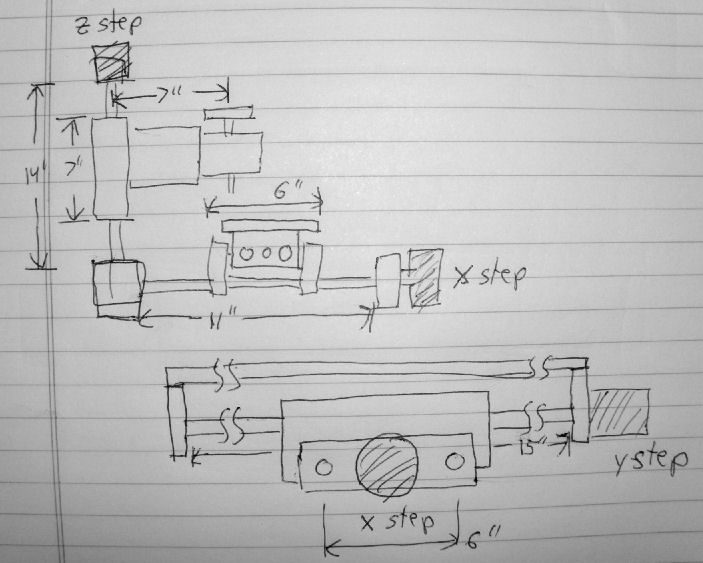 z step
7"
14"
7"
6"
x step
11"
15"
y step
x step
6"